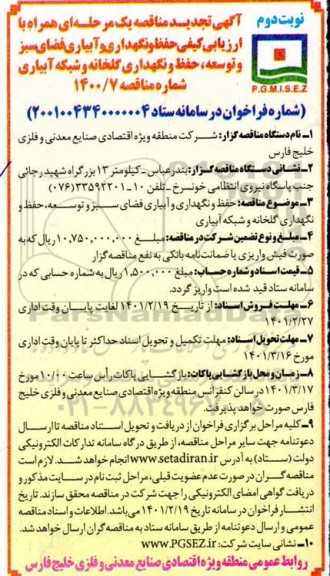 نوبت دوم
آگهی تجدید مناقصه یک مرحله‌ای همراه با
ارزیابی کیفی حفظ و نگهداری و آبیاری فضای سبز
و توسعه، حفظ و نگهداری گلخانه و شبکه آبیاری
شماره مناقصه ۱۴۰۰/۷
P.G.M.I.S.E.Z
(شماره فراخوان در سامانه ستاد ۲۰۰۱۰۰۴۳۴۰۰۰۰۰۰۴)
۱- نام دستگاه مناقصه گزار: شرکت منطقه ویژه اقتصادی صنایع معدنی و فلزی
خلیج فارس
۲- نشانی دستگاه مناقصه گزار: بندرعباس - کیلومتر ۱۳ بزرگراه شهید رجائی
جنب پاسگاه نیروی انتظامی خونسرخ - تلفن ۱۰ - ۳۳۵۹۲۲۰۱ (۰۷۶)
۳- موضوع مناقصه: حفظ و نگهداری و آبیاری فضای سبز و توسعه، حفظ و
نگهداری گلخانه و شبکه آبیاری
۴- مبلغ و نوع تضمین شرکت در مناقصه: مبلغ ۱۰,۷۵۰,۰۰۰,۰۰۰ ریال که به
صورت فیش واریزی یا ضمانت‌نامه بانکی به نفع مناقصه گزار
۵- قیمت اسناد و شماره حساب: مبلغ ۱,۵۰۰,۰۰۰ ریال به شماره حسابی که در
سامانه ستاد قید شده است واریز گردد.
۶- مهلت فروش اسناد: از تاریخ ۱۴۰۱/۲/۱۹ لغایت پایان وقت اداری
۱۴۰۱/۲/۲۷
۷- مهلت تحویل اسناد: مهلت تکمیل و تحویل اسناد حداکثر تا پایان وقت اداری
مورخ ۱۴۰۱/۳/۱۶
۸- زمان و محل بازگشایی پاکات: بازگشایی پاکات رأس ساعت ۱۰/۰۰ مورخ
۱۴۰۱/۳/۱۷ در سالن کنفرانس منطقه ویژه اقتصادی صنایع معدنی و فلزی خلیج
فارس صورت خواهد پذیرفت.
۹- کلیه مراحل برگزاری فراخوان از دریافت و تحویل اسناد مناقصه تا ارسال
دعوتنامه جهت سایر مراحل مناقصه، از طریق درگاه سامانه تدارکات الکترونیکی
دولت (ستاد) به آدرس www.setadiran.ir انجام خواهد شد. لازم است
مناقصه گران در صورت عدم عضویت قبلی، مراحل ثبت نام در سایت مذکور و
دریافت گواهی امضای الکترونیکی را جهت شرکت در مناقصه محقق سازند. تاریخ
انتشار فراخوان در سامانه تاریخ ۱۴۰۱/۲/۱۹ می‌باشد. اطلاعات و اسناد مناقصه
عمومی و ارسال دعوتنامه از طریق سامانه ستاد به مناقصه گران ارسال خواهد شد.
۱۰- نشانی سایت شرکت: www.PGSEZ.ir
روابط عمومی منطقه ویژه اقتصادی صنایع معدنی و فلزی خلیج فارس